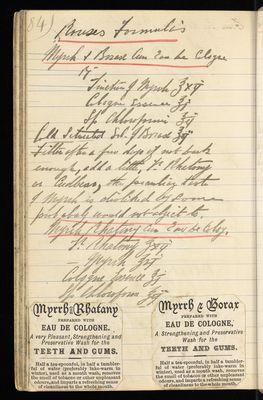 84)
Rouses Formula's
Myrrh & Borax cum Eau de Cologne
Tincture of Myrrh
Cologne Essence
Sp Chloroformi
Sol. of Borax
Filter after a few days if not dark
enough, add a little Tr. Rhatany
or Cudbear, the
of Myrrh is
probably would not object to.
Myrrh Rhatany cum Eau de Colog.
Tr Rhatany
Myrrh
Cologne Essence
Sp Chloroform
Myrrh & Rhatany
PREPARED WITH
EAU DE COLOGNE.
A very Pleasant, Strengthening and
Preservative Wash for the
TEETH AND GUMS.
Half a tea-spoonful, in half a tumbler-
ful of water (preferably luke-warm in
winter), used as a mouth wash, removes
the smell of tobacco or other unpleasant
odours, and imparts a refreshing sense
of cleanliness to the whole mouth.
Myrrh & Borax
PREPARED WITH
EAU DE COLOGNE,
A Strengthening and Preservative
Wash for the
TEETH AND GUMS.
Half a tea-spoonful, in half a tumbler-
ful of water (preferably luke-warm in
winter), used as a mouth wash, removes
the smell of tobacco or other unpleasant
odours, and imparts a refreshing sense
of cleanliness to the whole mouth.